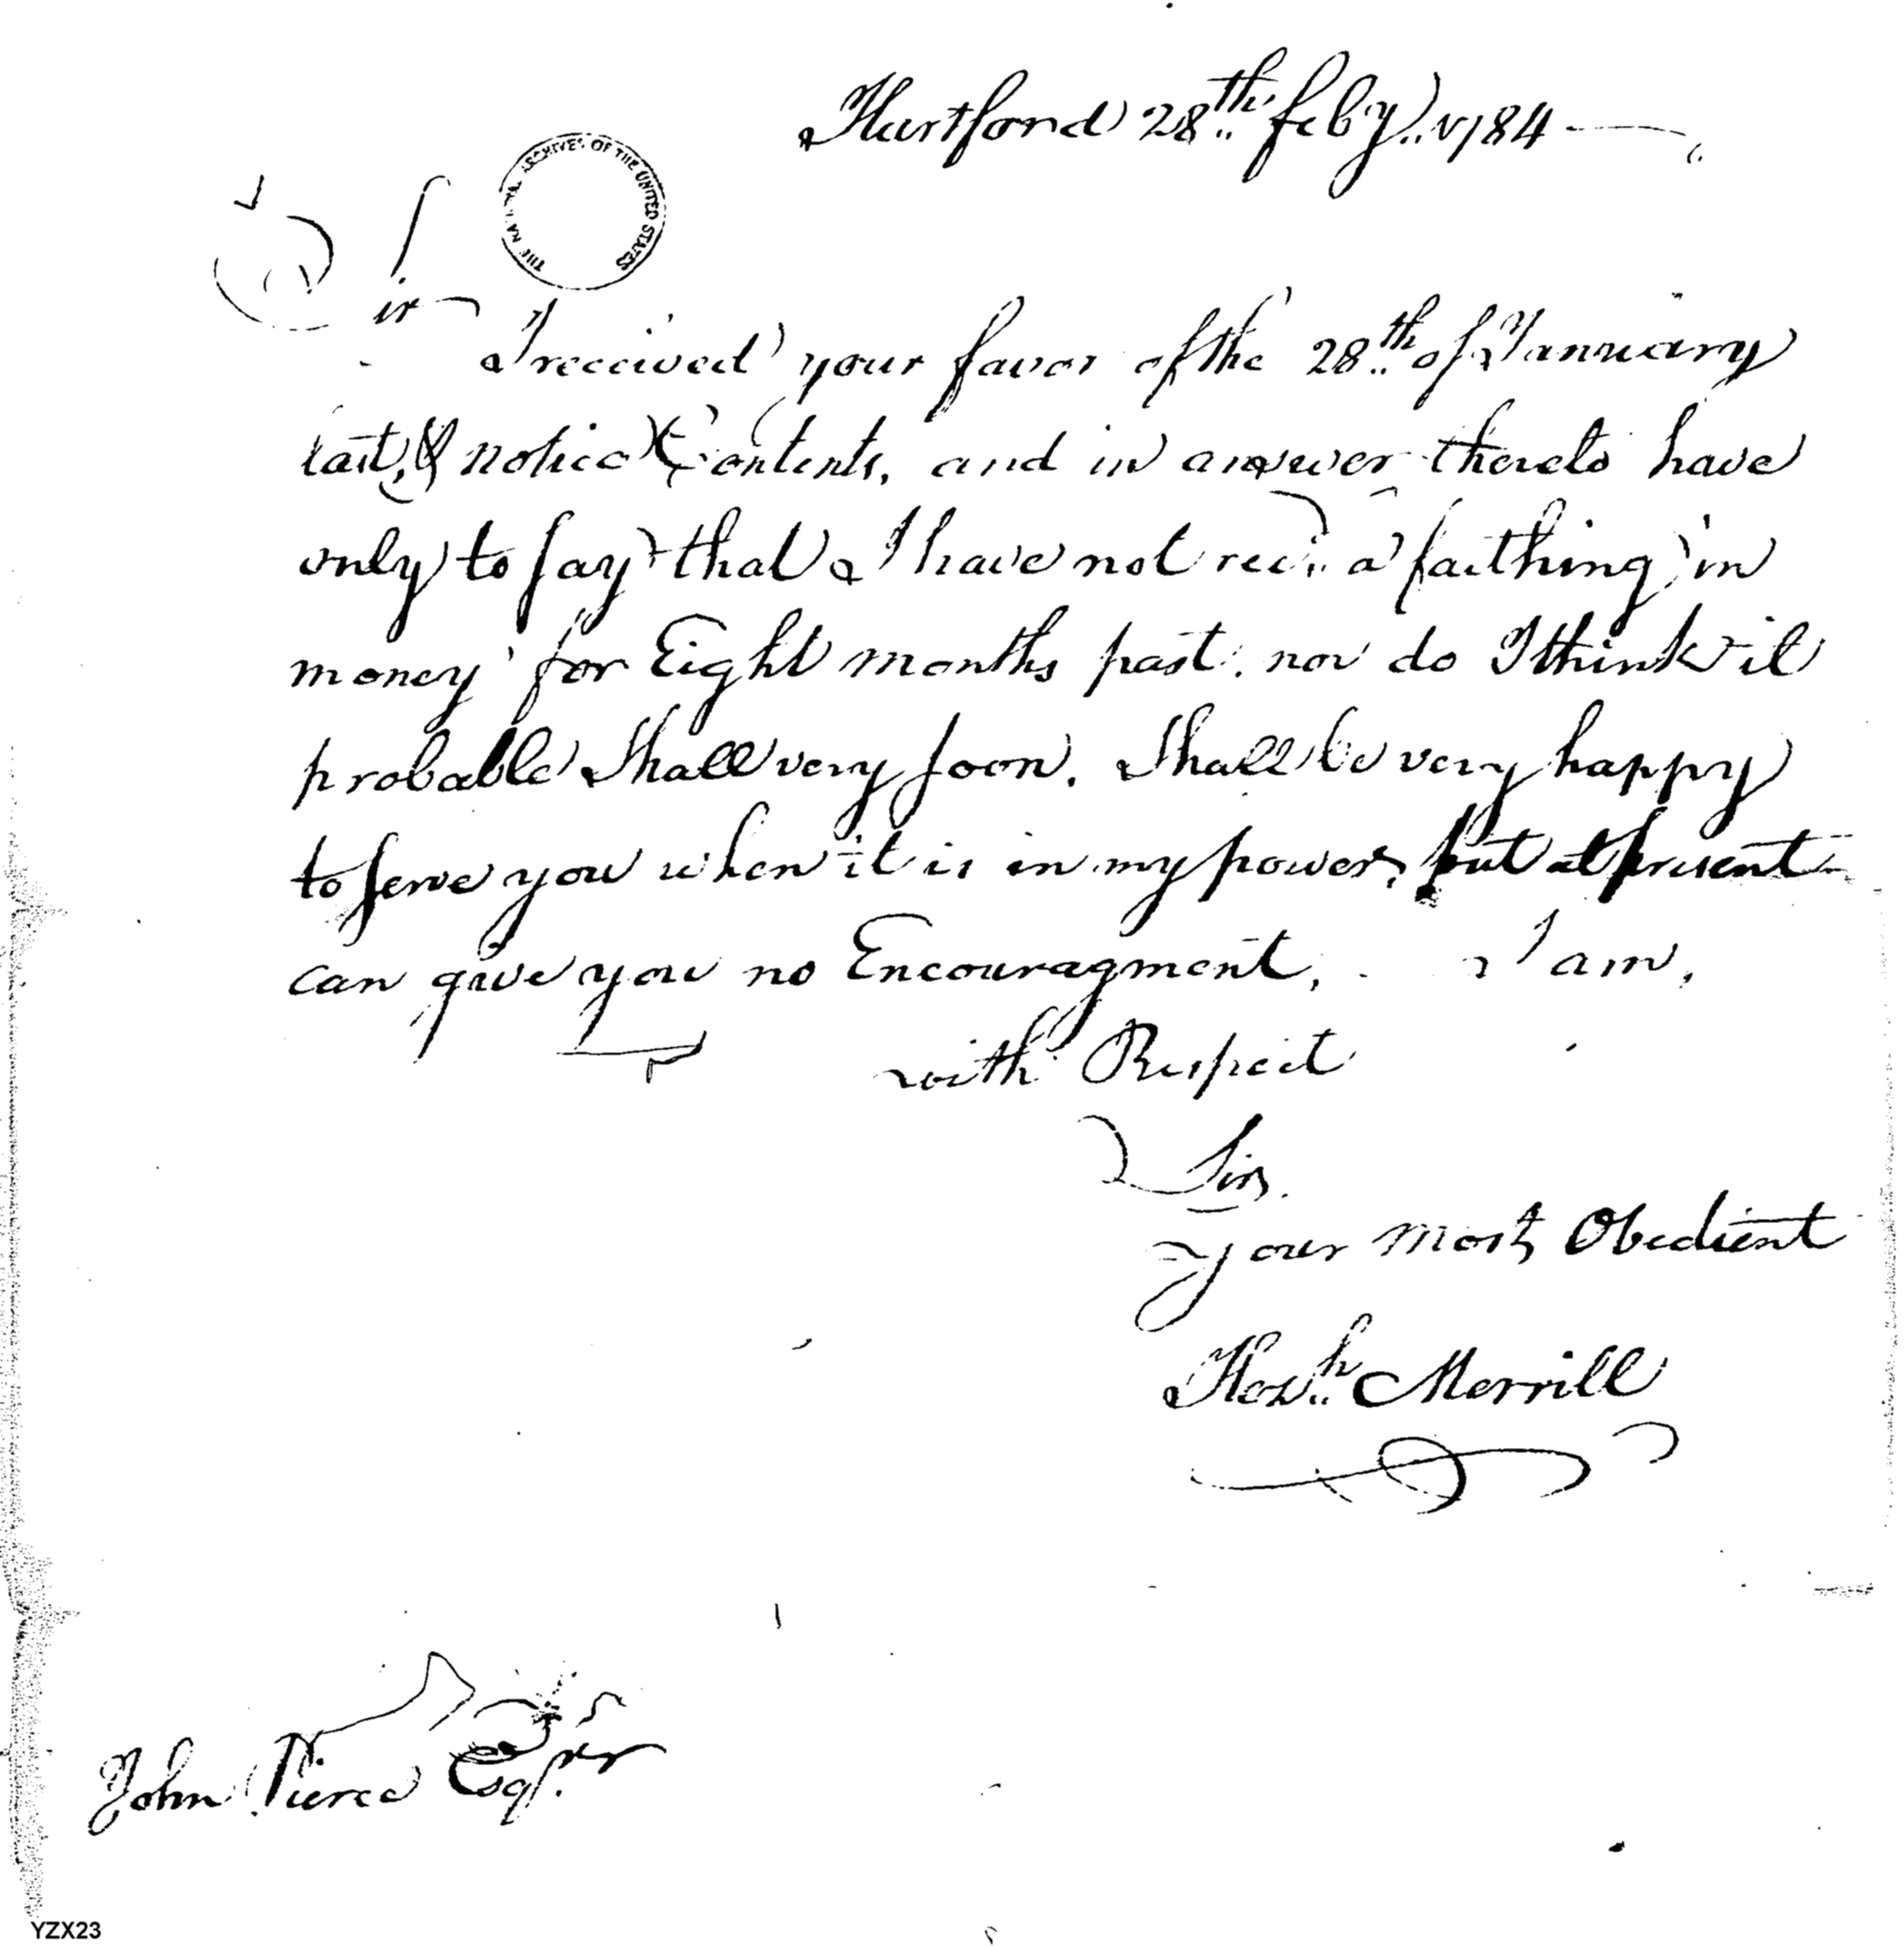 Hartford 28th Feby. 1784
THE NATIONAL ARCHIVES OF THE UNITED STATES
Sir
I received your favor of the 28th of January
last, & notice Contents, and in answer thereto have
only to say that I have not recd. a farthing in
money for Eight months past. nor do I think it
probable Shall very soon. Shall be very happy
to serve you when it is in my power, but at present
can give you no Encouragment. I am,
with Respect
Sir,
your most Obedient
Hezh. Merrill
John Pierce Esqr.
YZX23